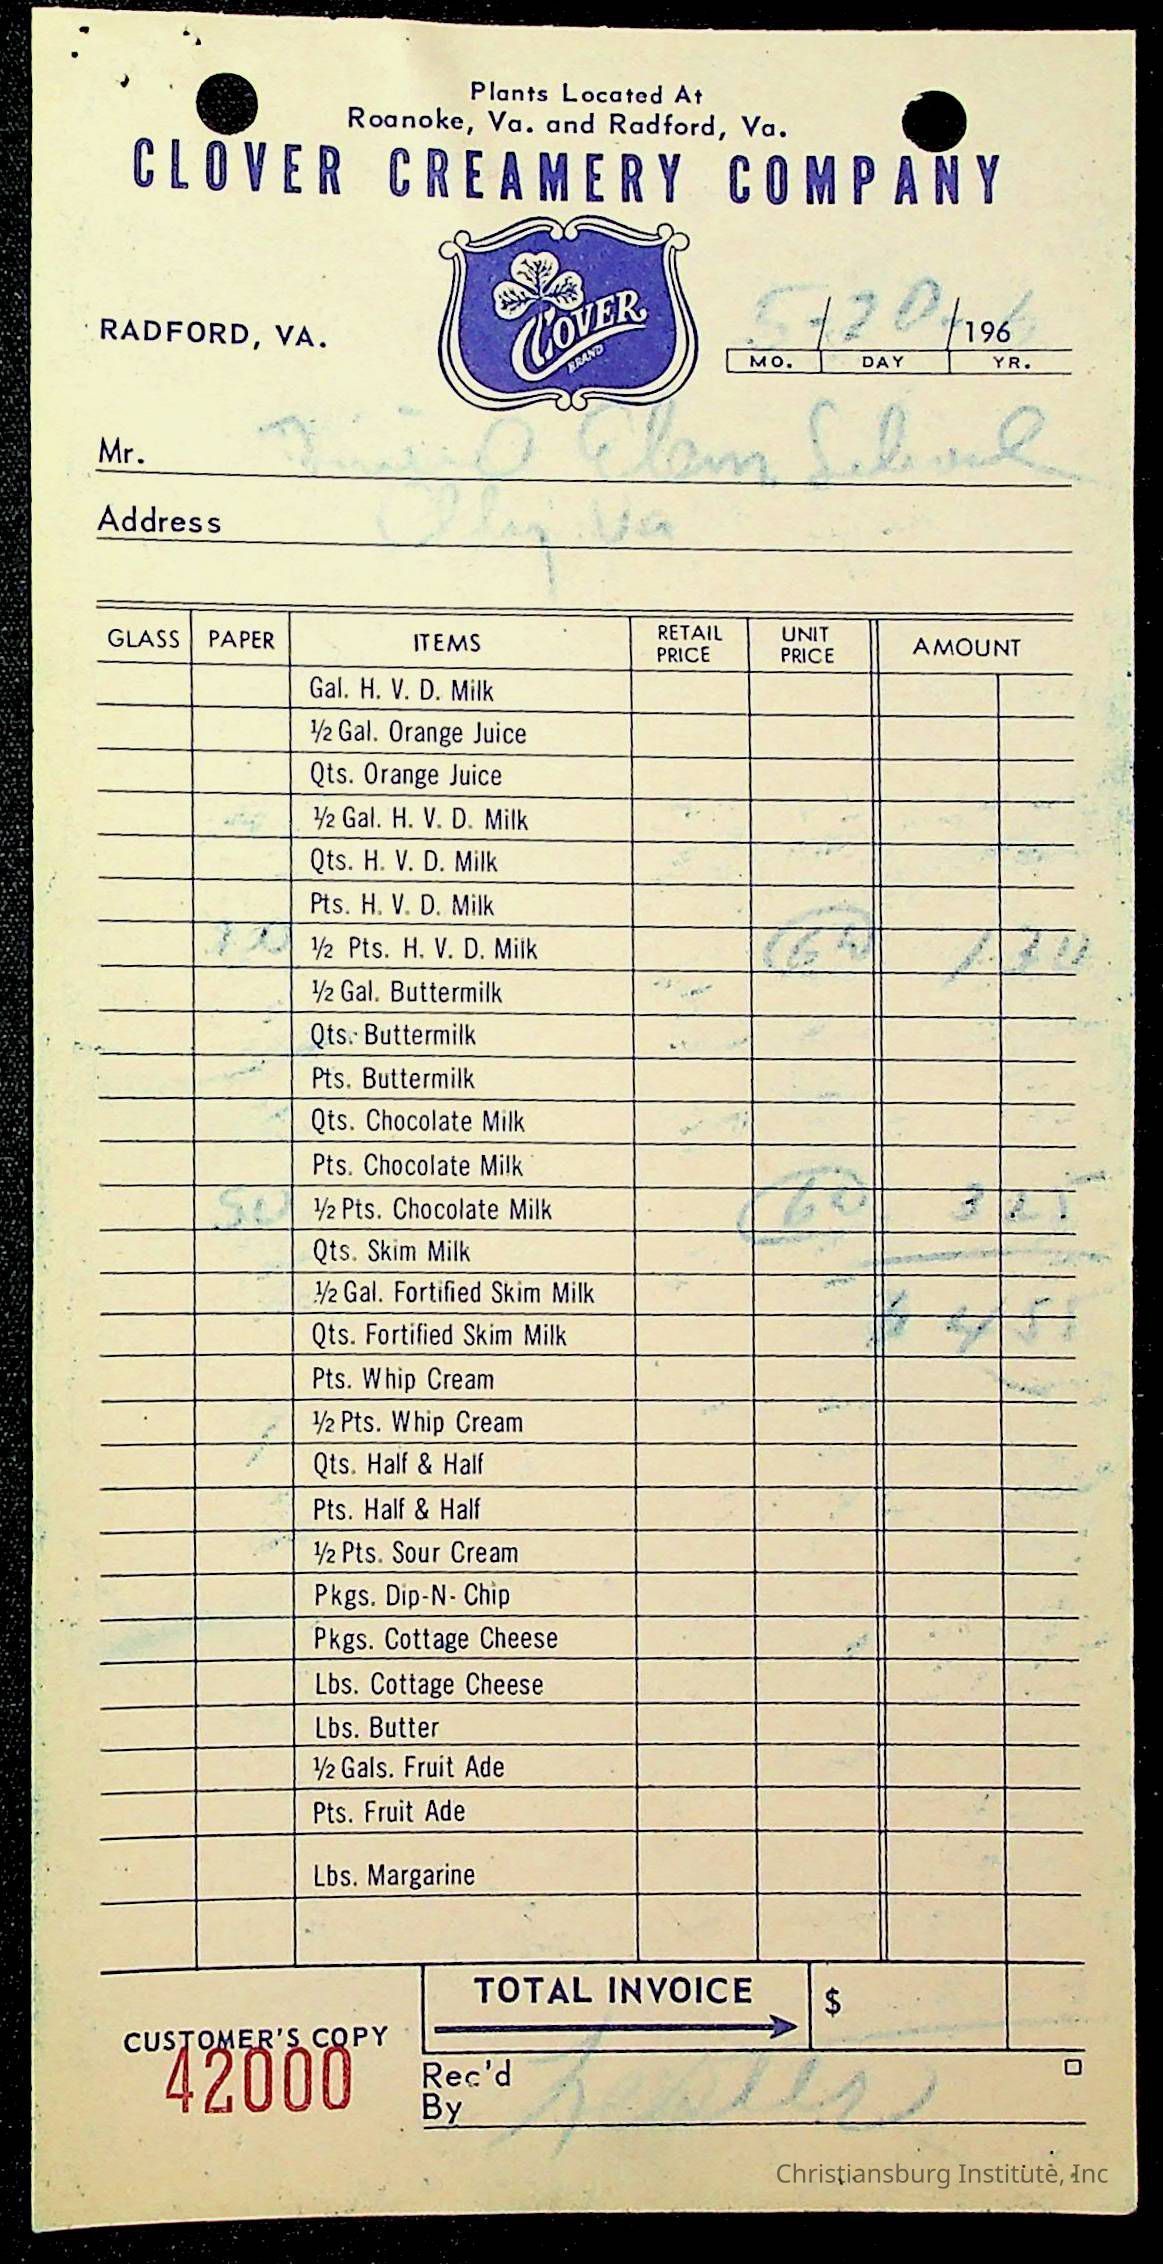 Plants Located At
Roanoke, Va. and Radford, Va.
CLOVER CREAMERY COMPANY
CLOVER
BRAND
RADFORD, VA.
5-20- /196
MO. DAY YR.
Mr. Elem School
Address Va
GLASS PAPER ITEMS RETAIL PRICE UNIT PRICE AMOUNT
Gal. H. V. D. Milk
½ Gal. Orange Juice
Qts. Orange Juice
½ Gal. H. V. D. Milk
Qts. H. V. D. Milk
Pts. H. V. D. Milk
½ Pts. H. V. D. Milk 1.30
½ Gal. Buttermilk
Qts. Buttermilk
Pts. Buttermilk
Qts. Chocolate Milk
Pts. Chocolate Milk
50 ½ Pts. Chocolate Milk 3 25
Qts. Skim Milk
½ Gal. Fortified Skim Milk
$ 4 55
Qts. Fortified Skim Milk
Pts. Whip Cream
½ Pts. Whip Cream
Qts. Half & Half
Pts. Half & Half
½ Pts. Sour Cream
Pkgs. Dip-N-Chip
Pkgs. Cottage Cheese
Lbs. Cottage Cheese
Lbs. Butter
½ Gals. Fruit Ade
Pts. Fruit Ade
Lbs. Margarine
TOTAL INVOICE $
CUSTOMER'S COPY
42000
Rec'd
By
Christiansburg Institute, Inc